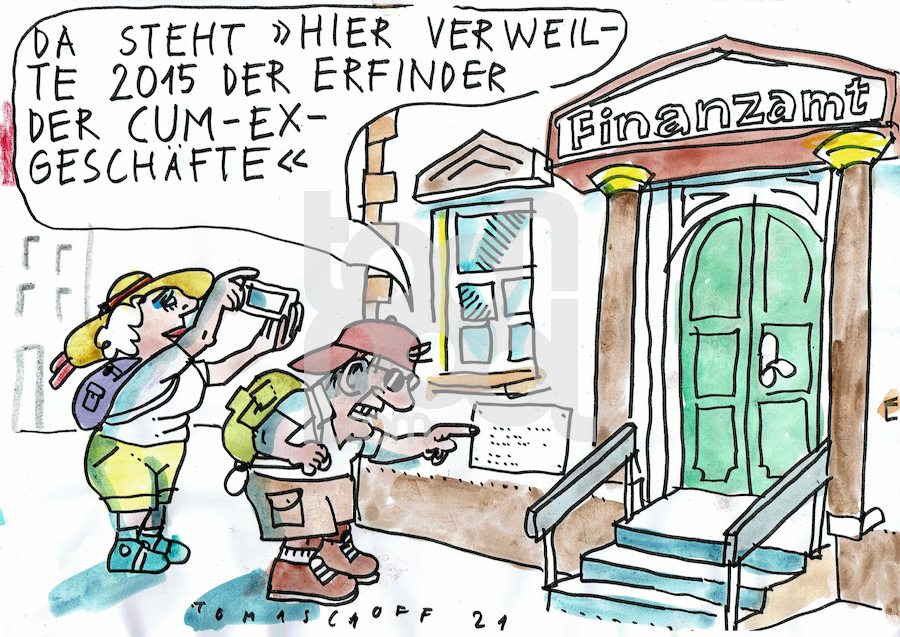 DA STEHT »HIER VERWEIL-
TE 2015 DER ERFINDER
DER CUM-EX-
GESCHÄFTE«
Finanzamt
TOMASCHOFF 21